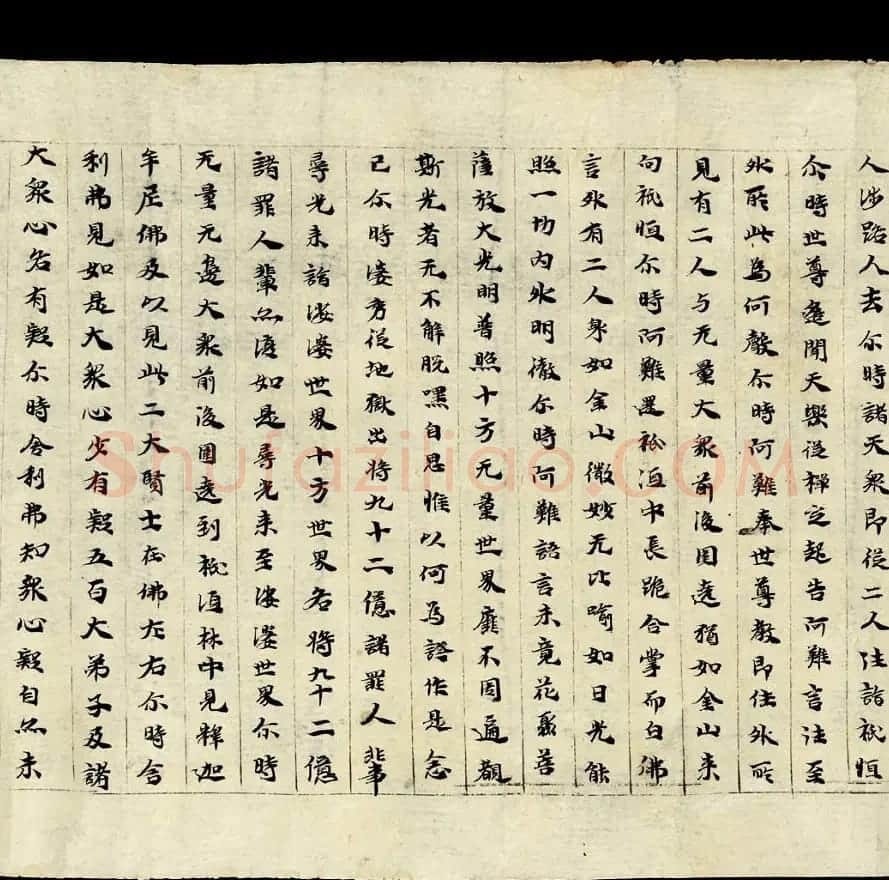 人涉路人去尒時諸天衆即從二人往詣祇恒
尒時世尊遥聞天樂從禪定起告阿難言汝至
外所此為何聲尒時阿難奉世尊教即往外所
見有二人与无量大衆前後圍遶猶如金山来
向祇恒尒時阿難還祇洹中長跪合掌而白佛
言外有二人身如金山微妙无比喻如日光能
照一切内外明徹尒時阿難語言未竟花聚菩
薩放大光明普照十方无量世界靡不周遍覩
斯光者无不解脱嘿自思惟以何為語作是念
已尒時婆方從地獄出将九十二億諸罪人輩
尋光来詣娑婆世界十方世界各将九十二億
諸罪人輩亦復如是尋光来至娑婆世界尒時
无量无邊大衆前後圍遶到祇洹林中見釋迦
牟尼佛及以見此二大賢士在佛左右尒時舍
利弗見如是大衆心少有疑五百大弟子及諸
大衆心各有疑尒時舍利弗知衆心疑自亦未
Shufaziliao.COM